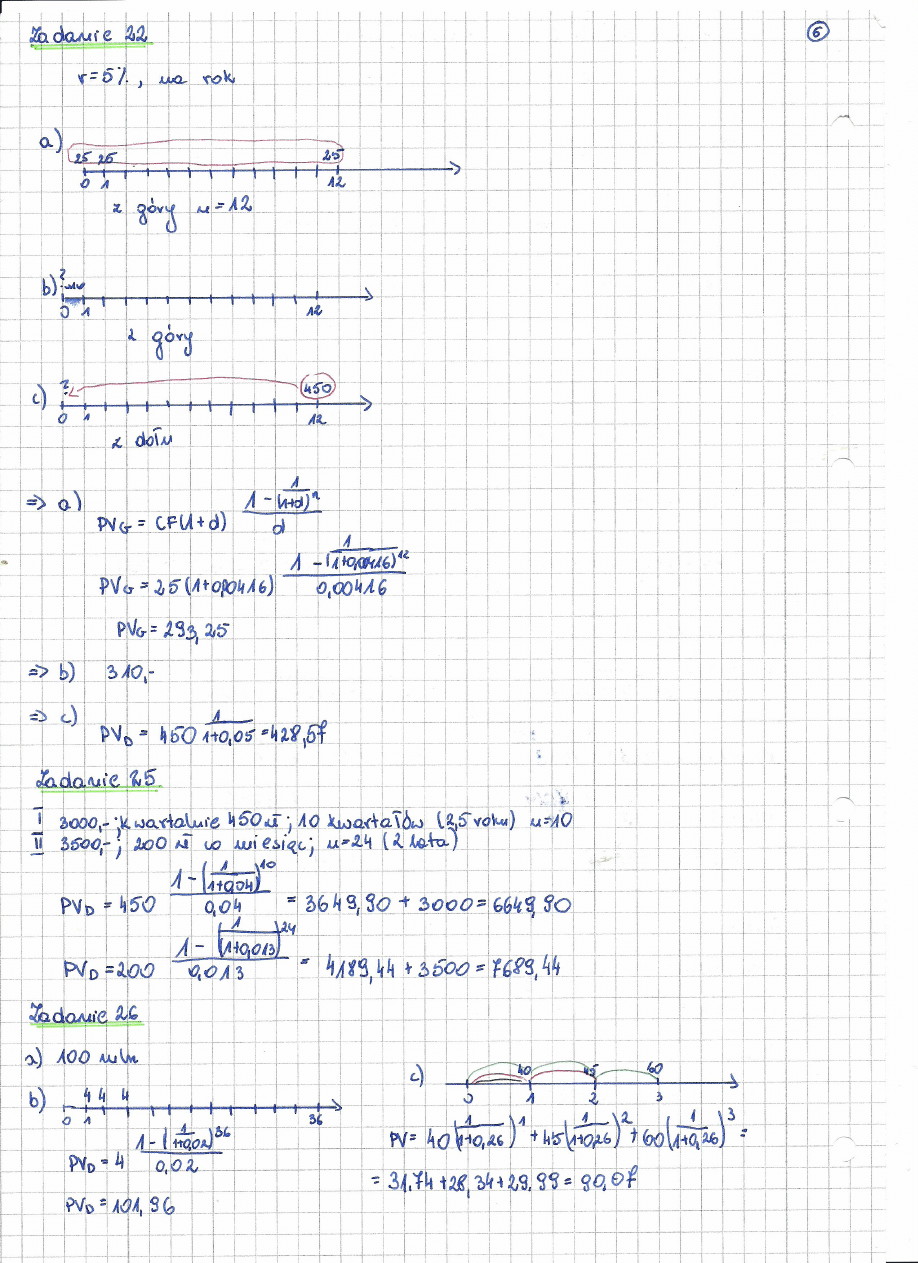 6
Zadanie 22
r=5%, na rok
a)
25 25 25
0 1 12
z góry n=12
b)
?
0 1 12
z góry
c)
? 450
0 1 12
z dołu
=> a) PV_G = CF(1+d) \frac{1-\frac{1}{(1+d)^n}}{d}
PV_G = 25(1+0,00416) \frac{1-(\frac{1}{1+0,00416})^{12}}{0,00416}
PV_G = 293,25
=> b) 310,-
=> c) PV_D = 450 \frac{1}{1+0,05} = 428,57
Zadanie 25
I 3000,-; kwartalnie 450 zł; 10 kwartałów (2,5 roku) n=10
II 3500,-; 200 zł co miesiąc; n=24 (2 lata)
PV_D = 450 \frac{1-(\frac{1}{1+0,04})^{10}}{0,04} = 3649,90 + 3000 = 6649,90
PV_D = 200 \frac{1-(\frac{1}{1+0,013})^{24}}{0,013} = 4189,44 + 3500 = 7689,44
Zadanie 26
a) 100 mln
b)
4 4 4
0 1 36
PV_D = 4 \frac{1-(\frac{1}{1+0,02})^{36}}{0,02}
PV_D = 101,96
c)
40 45 60
0 1 2 3
PV = 40(\frac{1}{1+0,26})^1 + 45(\frac{1}{1+0,26})^2 + 60(\frac{1}{1+0,26})^3 =
= 31,74 + 28,34 + 29,99 = 90,07